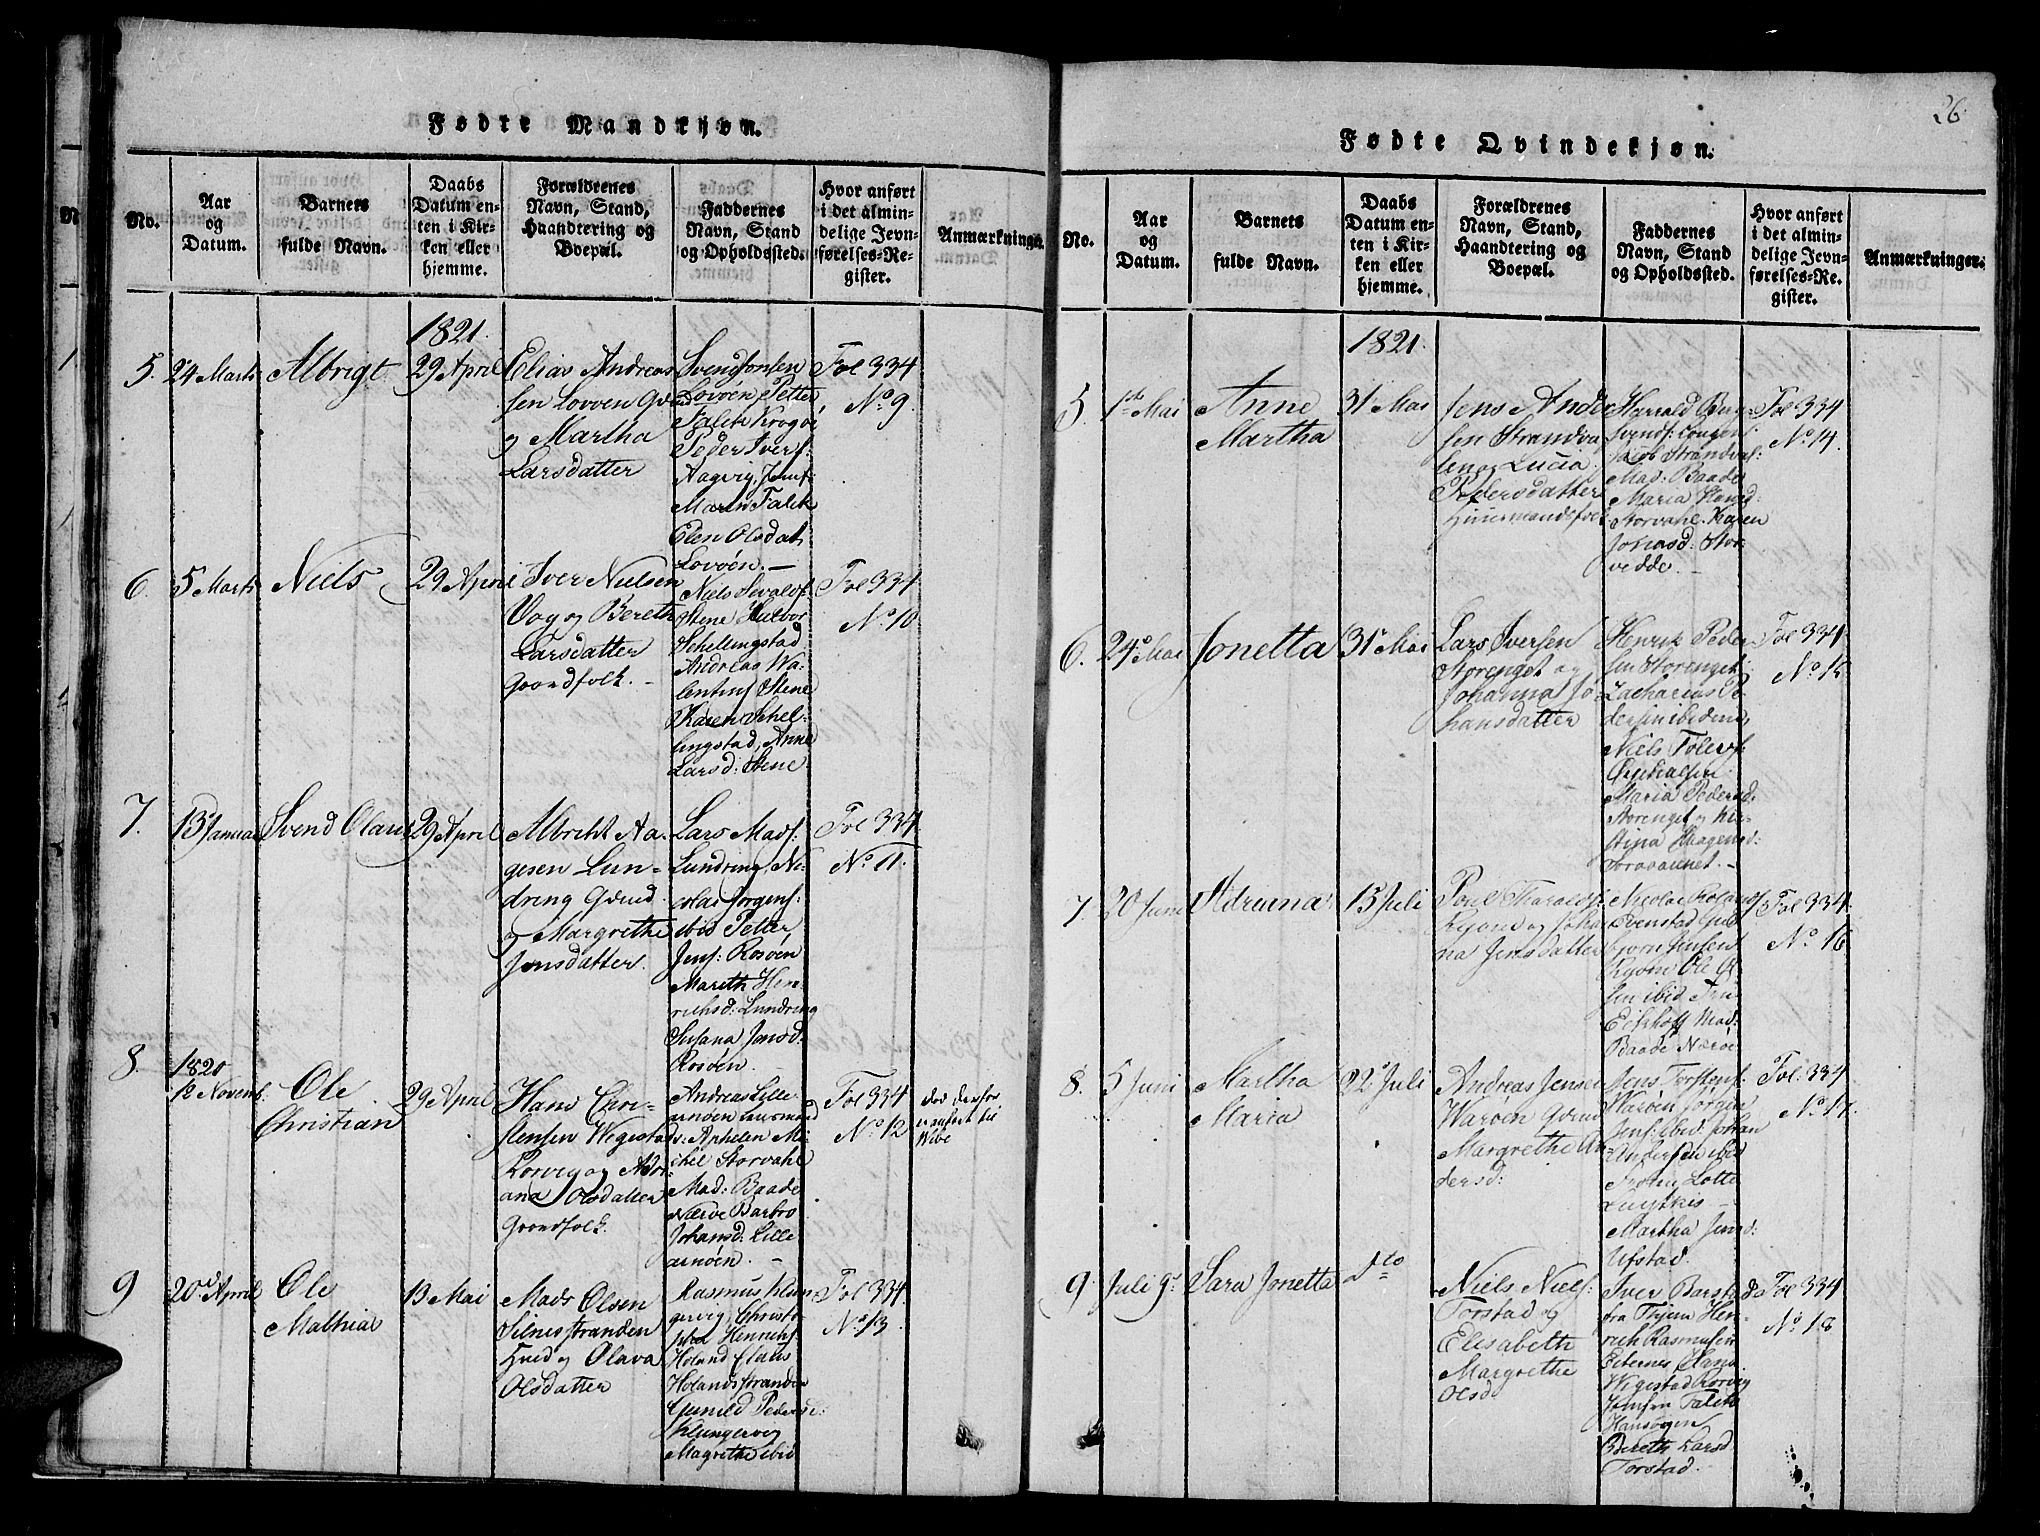 Fødte Mandkjøn.
No.
Aar
og
Datum.
Barnets
fulde Navn.
Daabs
Datum en-
ten i Kir-
ken eller
hjemme.
Forældrenes
Navn, Stand,
Haandtering og
Boepæl.
Faddernes
Navn, Stand
og Opholdssted.
Hvor anført
i det almin-
delige Jevn-
førelses-Re-
gister.
Anmærkninger.
1821.
5.
24 Marts
Albrigt
29 April
Elias Andreas
sen Lovøen Gaard
og Martha
Larsdatter
Svend Jonsen
Lovøen Petter
Falch Krogøi
Peder Ivers:
Aagvig, Jomf:
Maren Falch
Elen Olsdat
Lovøen. —
Fol 334
No 9.
6.
5 Marts
Niels
29 April
Iver Nielsen
Vog og Bereth
Larsdatter
Gaardfolk. —
Niels Sevalds
Stene Halvor
Schellingstad
Andreas Va-
lentins Stene
Karen Schel-
lingstad, Anne
Larsd: Stene
Fol 334
No 10
7.
13 Januar
Svend Olaus
29 April
Albricht Aa-
gesen Lun-
dring Gaard
og Margrethe
Jensdatter.
Lars Mads:
Lundring, Ni-
colai Jørgens:
ibid Petter
Jens: Rosøen
Mareth Hen-
richsd: Lundring
Susana Jensd:
Rosøen.
Fol 334
No 11.
8.
1820
12 Novemb.
Ole
Christian
29 April
Hans Chri-
stensen Wegestad
Rorvig og Adri-
ana Olsdatter
Gaardfolk.
Andreas Lille-
arnøen Huusmand
Mi-
chel Storvahl
Mad: Baade
Nærøe Barbro
Johansd: Lille-
arnøen. —
Fol 334
No 12
død derfor
er anført til
9
20de April
Ole
Mathias
13 Mai
Mads Olsen
Silnesstranden
Huusd og Olava
Olsdatter
Rasmus Klun-
gervig, Christo-
pher Henrichs:
Holand Claus
Holandsstranden
Gunild Pedersd:
Klungervig
Magrethe ibid
Fol 334.
No 13.
26.
Fødte Qvindekjøn.
No.
Aar
og
Datum.
Barnets
fulde Navn.
Daabs
Datum en-
ten i Kir-
ken eller
hjemme.
Forældrenes
Navn, Stand,
Haandtering og
Boepæl.
Faddernes
Navn, Stand
og Opholdssted.
Hvor anført
i det almin-
delige Jevn-
førelses-Re-
gister.
Anmærkninger.
1821.
5.
1ste Mai
Anne
Martha
31 Mai
Jens Ander
sen Strandva
len og Lucia
Pedersdatter
Huusmandsfolk
Harrald
Svends:
Jacob Strandval
Mad: Baade
Maria
Storvahl. Karen
Jonasd: Stor
vedde. —
Fol 334
No 14.
6.
24 Mai
Jonetta
31 Mai
Lars Iversen
Storenget og
Johanna Jo-
hansdatter
Henrik Peder-
sen Storenget
Zacharias Pe-
dersen ibidem,
Niels
Maria Pedersd.
Storenget og Kir-
stina Haagensd:
Fol 334
No 15.
7.
20 Juni
Adriana
15 Juli
Poul Tharalds:
og Joha-
na Jensdatter
Nicolai Rolands
Evenstad Gul
bjørn Jensen
Ole Ol-
sen ibid Fru
Eikhoff Mad:
Baade Nærøe
Fol 334.
No 16
8.
5 Juni
Martha
Maria
22 Juli
Andreas Jensen
Warøen Gaard
Margrethe An
dersd:
Jens Torstens:
Warøen Jørgen
Jens: ibid Johan
Andersen ibid
Lotte
Martha Jensd:
Ufstad.
Fol: 334
No 17.
9
Juli 9
Sara Jonetta
dto
Niels Niels:
Torstad og
Elisabeth
Margrethe
Olsd
Iver Barstad
fra Hen-
rich Rasmusen
Hans
Wegestad Rorvig
Jomfru Falch
Bereth Larsd
Torstad.
Fol 334
No 18